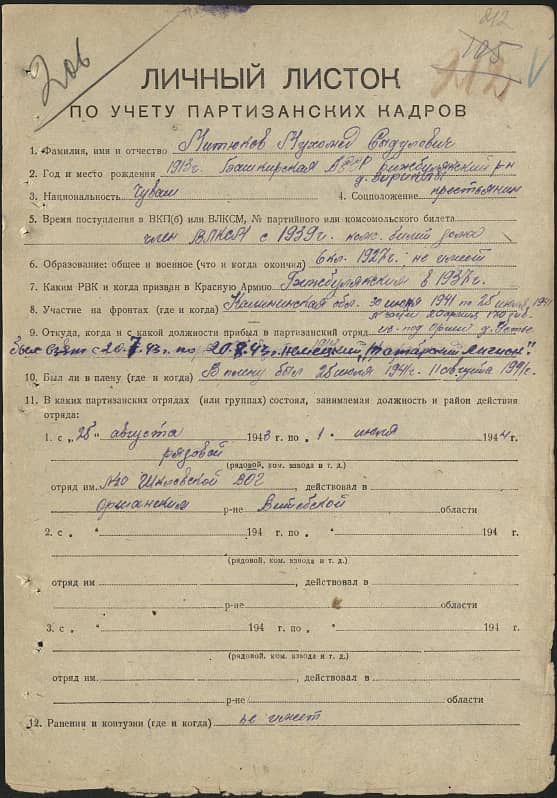 212
105
212 V
206
ЛИЧНЫЙ ЛИСТОК
ПО УЧЕТУ ПАРТИЗАНСКИХ КАДРОВ
1. Фамилия, имя и отчество Митюков Мухомед
2. Год и место рождения 1913г. Башкирская АССР р-н
д.
3. Национальность Чуваш 4. Соцположение крестьянин
5. Время поступления в ВКП(б) или ВЛКСМ, № партийного или комсомольского билета
член ВЛКСМ с 1939г. билет дома
6. Образование: общее и военное (что и когда окончил) 6 кл. 1927г. не имеет
7. Каким РВК и когда призван в Красную Армию в 1937г.
8. Участие на фронтах (где и когда) Калининская обл. 30 июня 1941 по 25 июля 1941
9. Откуда, когда и с какой должности прибыл в партизанский отряд из-под Орши д.
был с 20.7.43г. по 20.8.43г. немецкий "татарский легион"
10. Был ли в плену (где и когда) В плену был 25 июля 1941г. 11 августа 1941г.
11. В каких партизанских отрядах (или группах) состоял, занимаемая должность и район действия
отряда:
1. с „25" августа 1943 г. по „1" июля 1944 г.
рядовой
(рядовой, ком. взвода и т. д.)
отряд им. №30 Шкловской ВОГ, действовал в
Оршанским р-не Витебской области
2. с „ " 194 г. по „ " 194 г.
(рядовой, ком. взвода и т. д.)
отряд им , действовал в
р-не области
3. с „ " 194 г. по „ " 194 г.
(рядовой, ком. взвода и т. д.)
отряд им. , действовал в
р-не области
12. Ранения и контузии (где и когда) не имеет